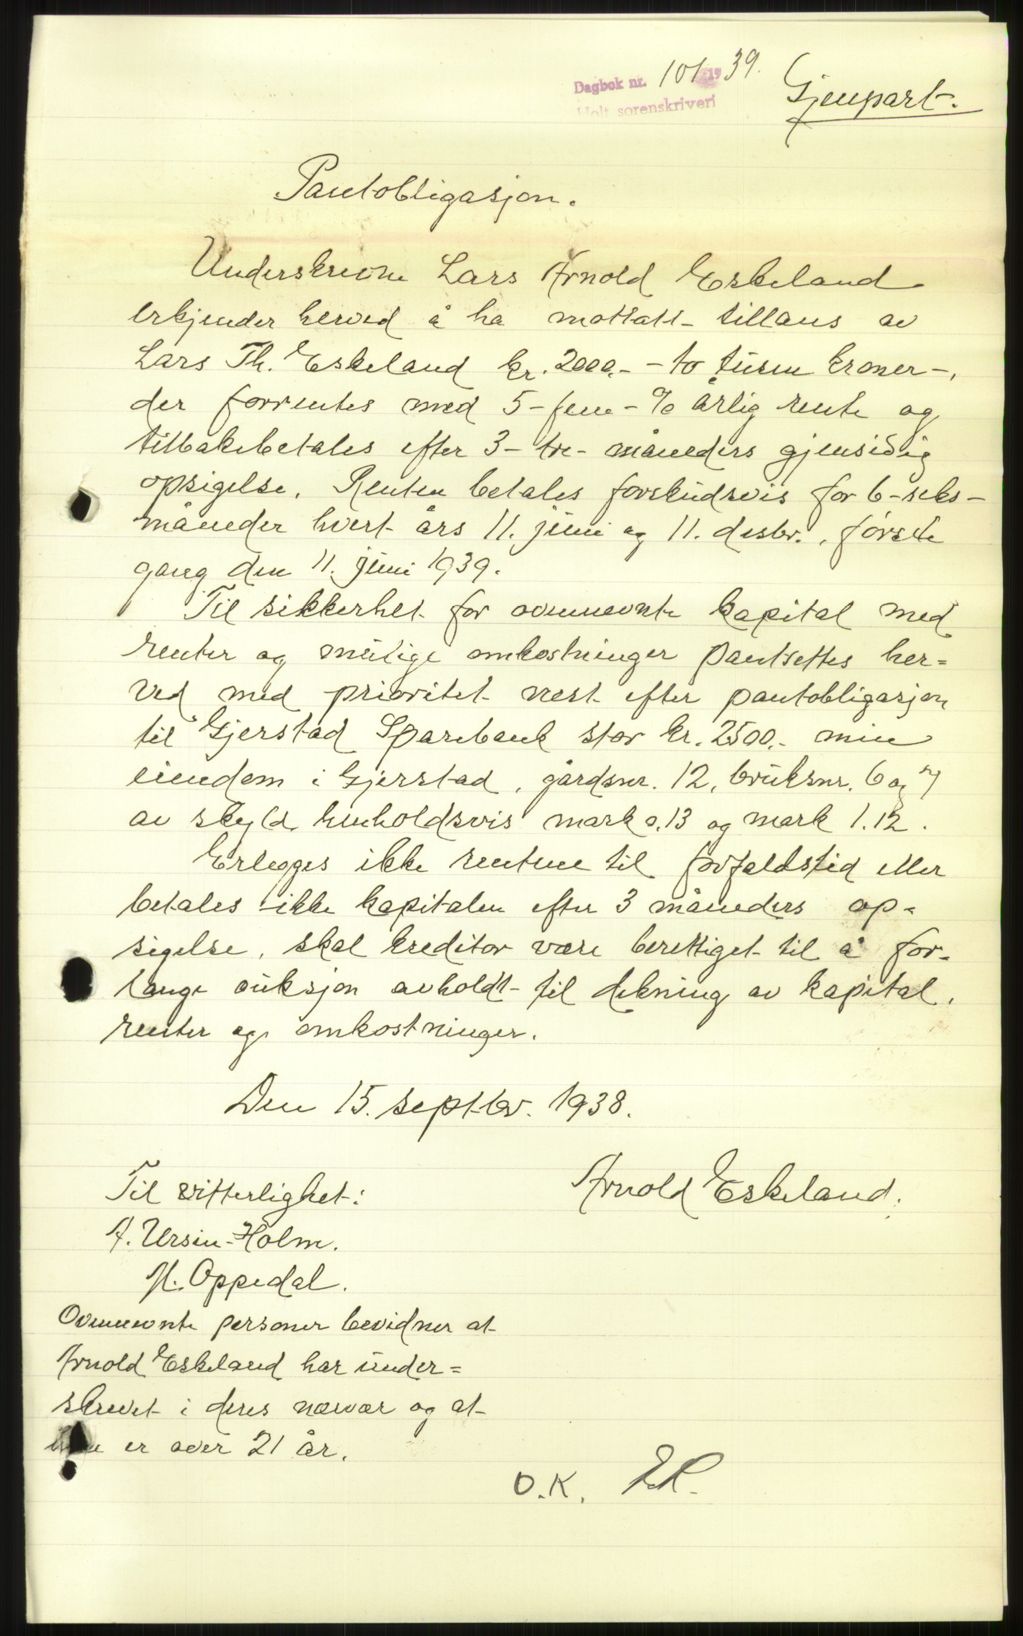 Dagbok nr. 101 1939.
Holt sorenskriveri
Gjenpart.
Pantobligasjon.
Underskrevne Lars Arnold Eskeland
erkjender herved å ha mottatt tillans av
Lars Th. Eskeland kr. 2000.- - to tusen kroner -,
der forrentes med 5 - fem - % årlig rente og
tilbakebetales efter 3 - tre - måneders gjensidig
opsigelse. Renten betales forskudsvis for 6 - seks -
måneder hvert års 11. juni og 11. desbr., første
gang den 11. juni 1939.
Til sikkerhet for ovennevnte kapital med
renter og mulige omkostninger pantsettes her=
ved med prioritet nest efter pantobligasjon
til Gjerstad Sparebank stor kr. 2500.- min
eiendom i Gjerstad, gårdsnr. 12, bruksnr. 6 og 7
av skyld henholdsvis mark 0.13 og mark 1.12.
Erlegges ikke rentene til forfaldstid eller
betales ikke kapitalen efter 3 måneders op=
sigelse, skal kreditor være berettiget til å for=
lange auksjon avholdt til dekning av kapital,
renter og omkostninger.
Den 15. septbr. 1938.
Arnold Eskeland.
Til vitterlighet:
A. Ursin-Holm.
N. Oppedal.
Ovennevnte personer bevidner at
Arnold Eskeland har under=
skrevet i deres nærvær og at
er over 21 år.
O.K.